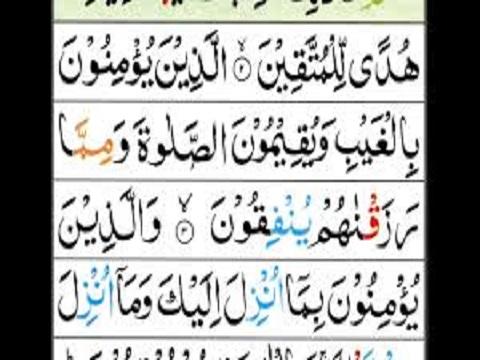 هُدًى لِّلْمُتَّقِيْنَ ۙ﴿۲﴾ الَّذِيْنَ يُؤْمِنُوْنَ
بِالْغَيْبِ وَيُقِيْمُوْنَ الصَّلٰوةَ وَمِمَّا
رَزَقْنٰهُمْ يُنْفِقُوْنَ ۙ﴿۳﴾ وَالَّذِيْنَ
يُؤْمِنُوْنَ بِمَاۤ اُنْزِلَ اِلَيْكَ وَمَاۤ اُنْزِلَ